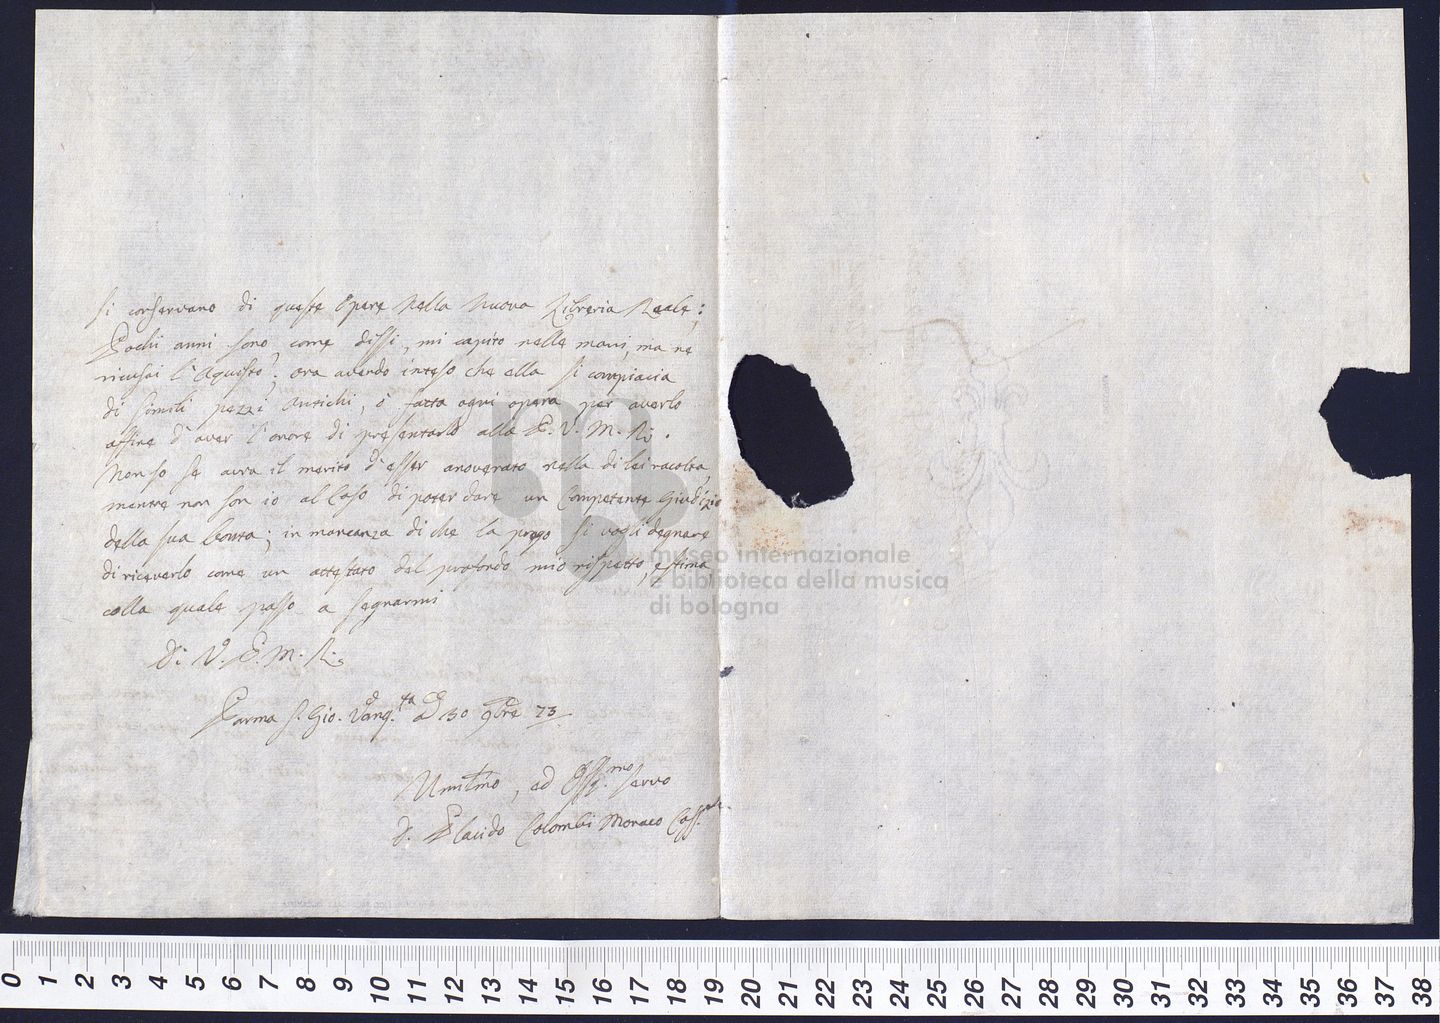 Si conservano di queste Opere nella nuova Libreria Reale;
Pochi anni sono, come dissi, mi capito nelle mani, ma ne
ricusai l'Aquisto; ora avendo inteso che ella si compiacia
di simili pezzi Antichi, ò fatta ogni opera per averlo
affine d'aver l'onore di presentarlo alla P. V. M. R.
Non so se avra il merito d'esser anoverato nella di lei racolta,
mentre non son io al Caso di poter dare un Competente Giudizio
della sua bonta; in mancanza di che la prego si vogli degnare
di riceverlo come un attestato del profondo mio rispetto, e stima
colla quale passo a segnarmi
Di V. P. M. R.
Parma S. Gio. Vang.ta ad 30 9bre 73
Umilmo, ed Obbl.mo Servo
d. Placido Colombi Monaco Cass.
museo internazionale
e biblioteca della musica
di bologna
0 1 2 3 4 5 6 7 8 9 10 11 12 13 14 15 16 17 18 19 20 21 22 23 24 25 26 27 28 29 30 31 32 33 34 35 36 37 38